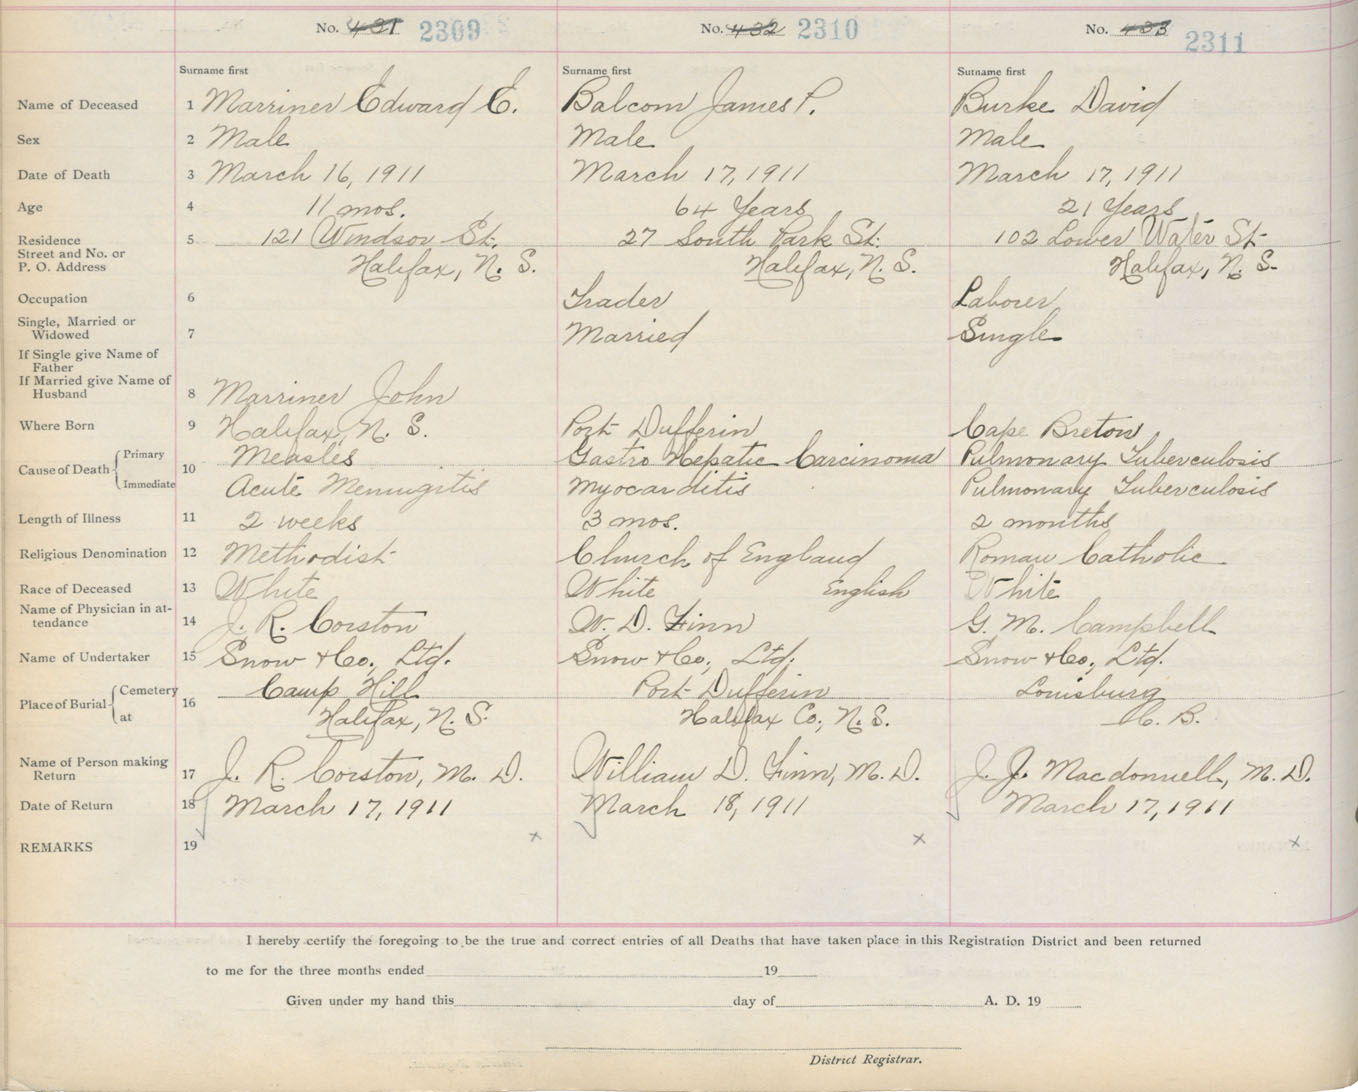 No. 431 2309 No. 432 2310 No. 433 2311
Surname first Surname first Surname first
Name of Deceased 1 Marriner Edward E. Balcom James P. Burke David
Sex 2 Male Male Male
Date of Death 3 March 16, 1911 March 17, 1911 March 17, 1911
Age 4 11 mos. 64 Years 21 Years
Residence 5 121 Windsor St. 27 South Park St. 102 Lower Water St
Street and No. or
P. O. Address Halifax, N. S. Halifax, N. S. Halifax, N. S.
Occupation 6 Trader Laborer
Single, Married or
Widowed 7 Married Single
If Single give Name of
Father
If Married give Name of
Husband 8 Marriner John
Where Born 9 Halifax, N. S. Port Dufferin Cape Breton
Cause of Death 10 Primary Measles Gastro Hepatic Carcinoma Pulmonary Tuberculosis
Immediate Acute Meningitis Myocarditis Pulmonary Tuberculosis
Length of Illness 11 2 weeks 3 mos. 2 months
Religious Denomination 12 Methodist Church of England Roman Catholic
Race of Deceased 13 White White English White
Name of Physician in at-
tendance 14 J. R. Corston W. D. Finn G. M. Campbell
Name of Undertaker 15 Snow & Co., Ltd. Snow & Co., Ltd. Snow & Co., Ltd.
Place of Burial 16 Cemetery Camp Hill Port Dufferin Louisburg
at Halifax, N. S. Halifax Co., N. S. C. B.
Name of Person making
Return 17 J. R. Corston, M. D. William D. Finn, M. D. J. J. Macdonnell, M. D.
Date of Return 18 March 17, 1911 March 18, 1911 March 17, 1911
REMARKS 19 x x x
I hereby certify the foregoing to be the true and correct entries of all Deaths that have taken place in this Registration District and been returned
to me for the three months ended 19
Given under my hand this day of A. D. 19
District Registrar.